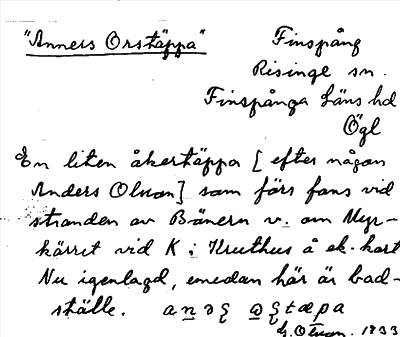 "Anners Orstäppa"
Finspång
Risinge sn.
Finspånga Läns hd
Ögl
En liten åkertäppa [efter någon
Anders Olsson] som förs fans vid
stranden av Bänern v. om Myr-
kärret vid K i Kruthus å ek. kart
Nu igenlagd, emedan här är bad-
ställe.
1933